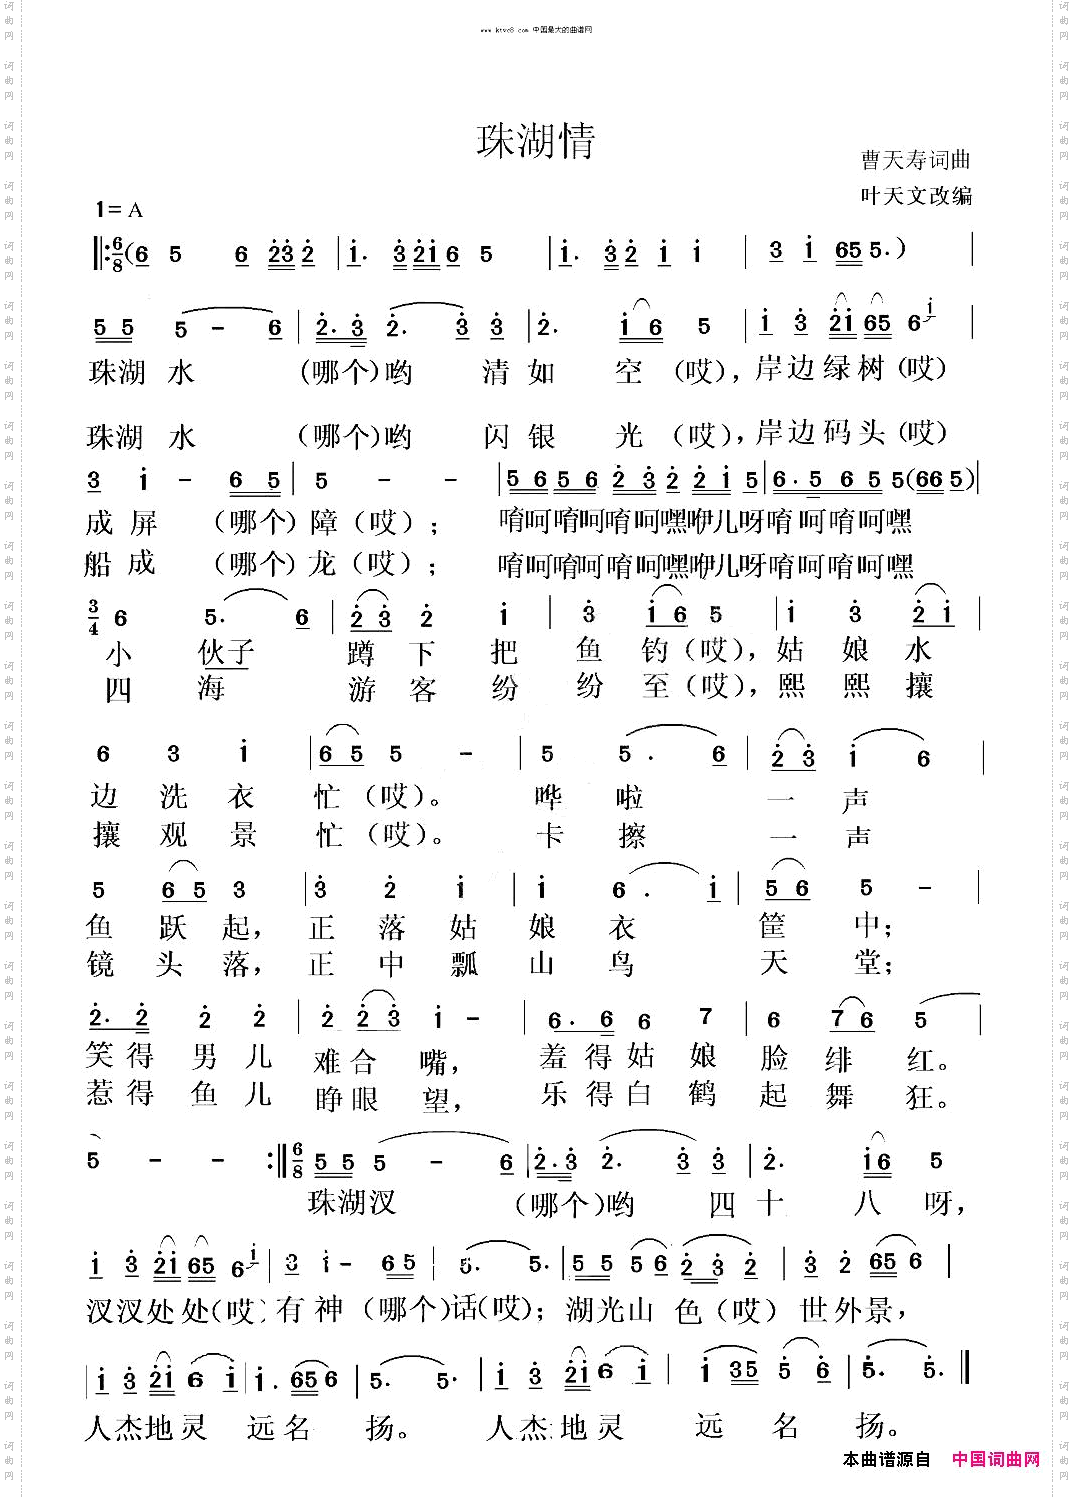 www.ktvc8.com 中国最大的曲谱网
珠湖情
曹天寿词曲
叶天文改编
1=A
6/8 (6 5 6 232 | 1. 3216 5 | 1. 32 1 1 | 3 1 655.)
55 5 - 6 | 2.3 2. 3 3 | 2. 16 5 | 1 3 2165 6
珠湖 水 (哪个)哟 清 如 空 (哎),岸边绿树(哎)
珠湖 水 (哪个)哟 闪 银 光 (哎),岸边码头(哎)
3 1 - 65 | 5 - - | 5656 232 21 5 | 6.5 65 5(665)
成 屏 (哪个)障(哎); 唷呵唷呵唷呵嘿咿儿呀唷呵唷呵嘿
船 成 (哪个)龙(哎); 唷呵唷呵唷呵嘿咿儿呀唷呵唷呵嘿
3/4 6 5. 6 | 23 2 1 | 3 16 5 | 1 3 21
小 伙子 蹲 下 把 鱼 钓(哎),姑 娘 水
四 海 游 客 纷 纷 至(哎),熙 熙 攘
6 3 1 | 65 5 - | 5 5. 6 | 23 1 6
边 洗 衣 忙(哎)。 哗 啦 一 声
攘 观 景 忙(哎)。 卡 擦 一 声
5 65 3 | 3 2 1 | 1 6. 1 | 56 5 -
鱼 跃 起, 正 落 姑 娘 衣 筐 中;
镜 头 落, 正 中 瓢 山 鸟 天 堂;
2.2 2 2 | 2 23 1 - | 6.6 6 7 | 6 76 5
笑得 男 儿 难合 嘴, 羞得姑 娘 脸 绯 红。
惹得 鱼 儿 睁眼 望, 乐得白 鹤 起 舞 狂。
5 - - :‖ 6/8 55 5 - 6 | 2.3 2. 3 3 | 2. 16 5
珠湖汊 (哪个)哟 四 十 八 呀,
1 3 2165 6 | 3 1 - 65 | 5. 5. | 55 56 232 | 3 2 656
汊汊处处(哎)有神(哪个)话(哎);湖光山 色(哎)世外景,
1 3 21 6 1 | 1. 656 | 5. 5. | 1 3 21 6 1 | 1 35 5 6 | 5. 5. ‖
人杰地灵 远名 扬。 人杰地灵 远 名 扬。
本曲谱源自 中国词曲网